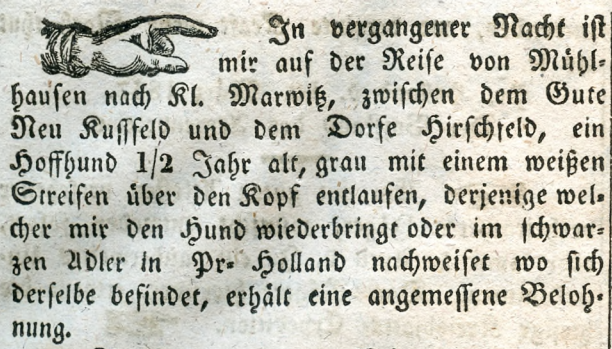 In vergangener Nacht ist
mir auf der Reise von Mühl-
hausen nach Kl. Marwitz, zwischen dem Gute
Neu Kussfeld und dem Dorfe Hirschfeld, ein
Hoffhund 1/2 Jahr alt, grau mit einem weißen
Streifen über den Kopf entlaufen, derjenige wel-
cher mir den Hund wiederbringt oder im schwar-
zen Adler in Pr- Holland nachweiset wo sich
derselbe befindet, erhält eine angemessene Beloh-
nung.